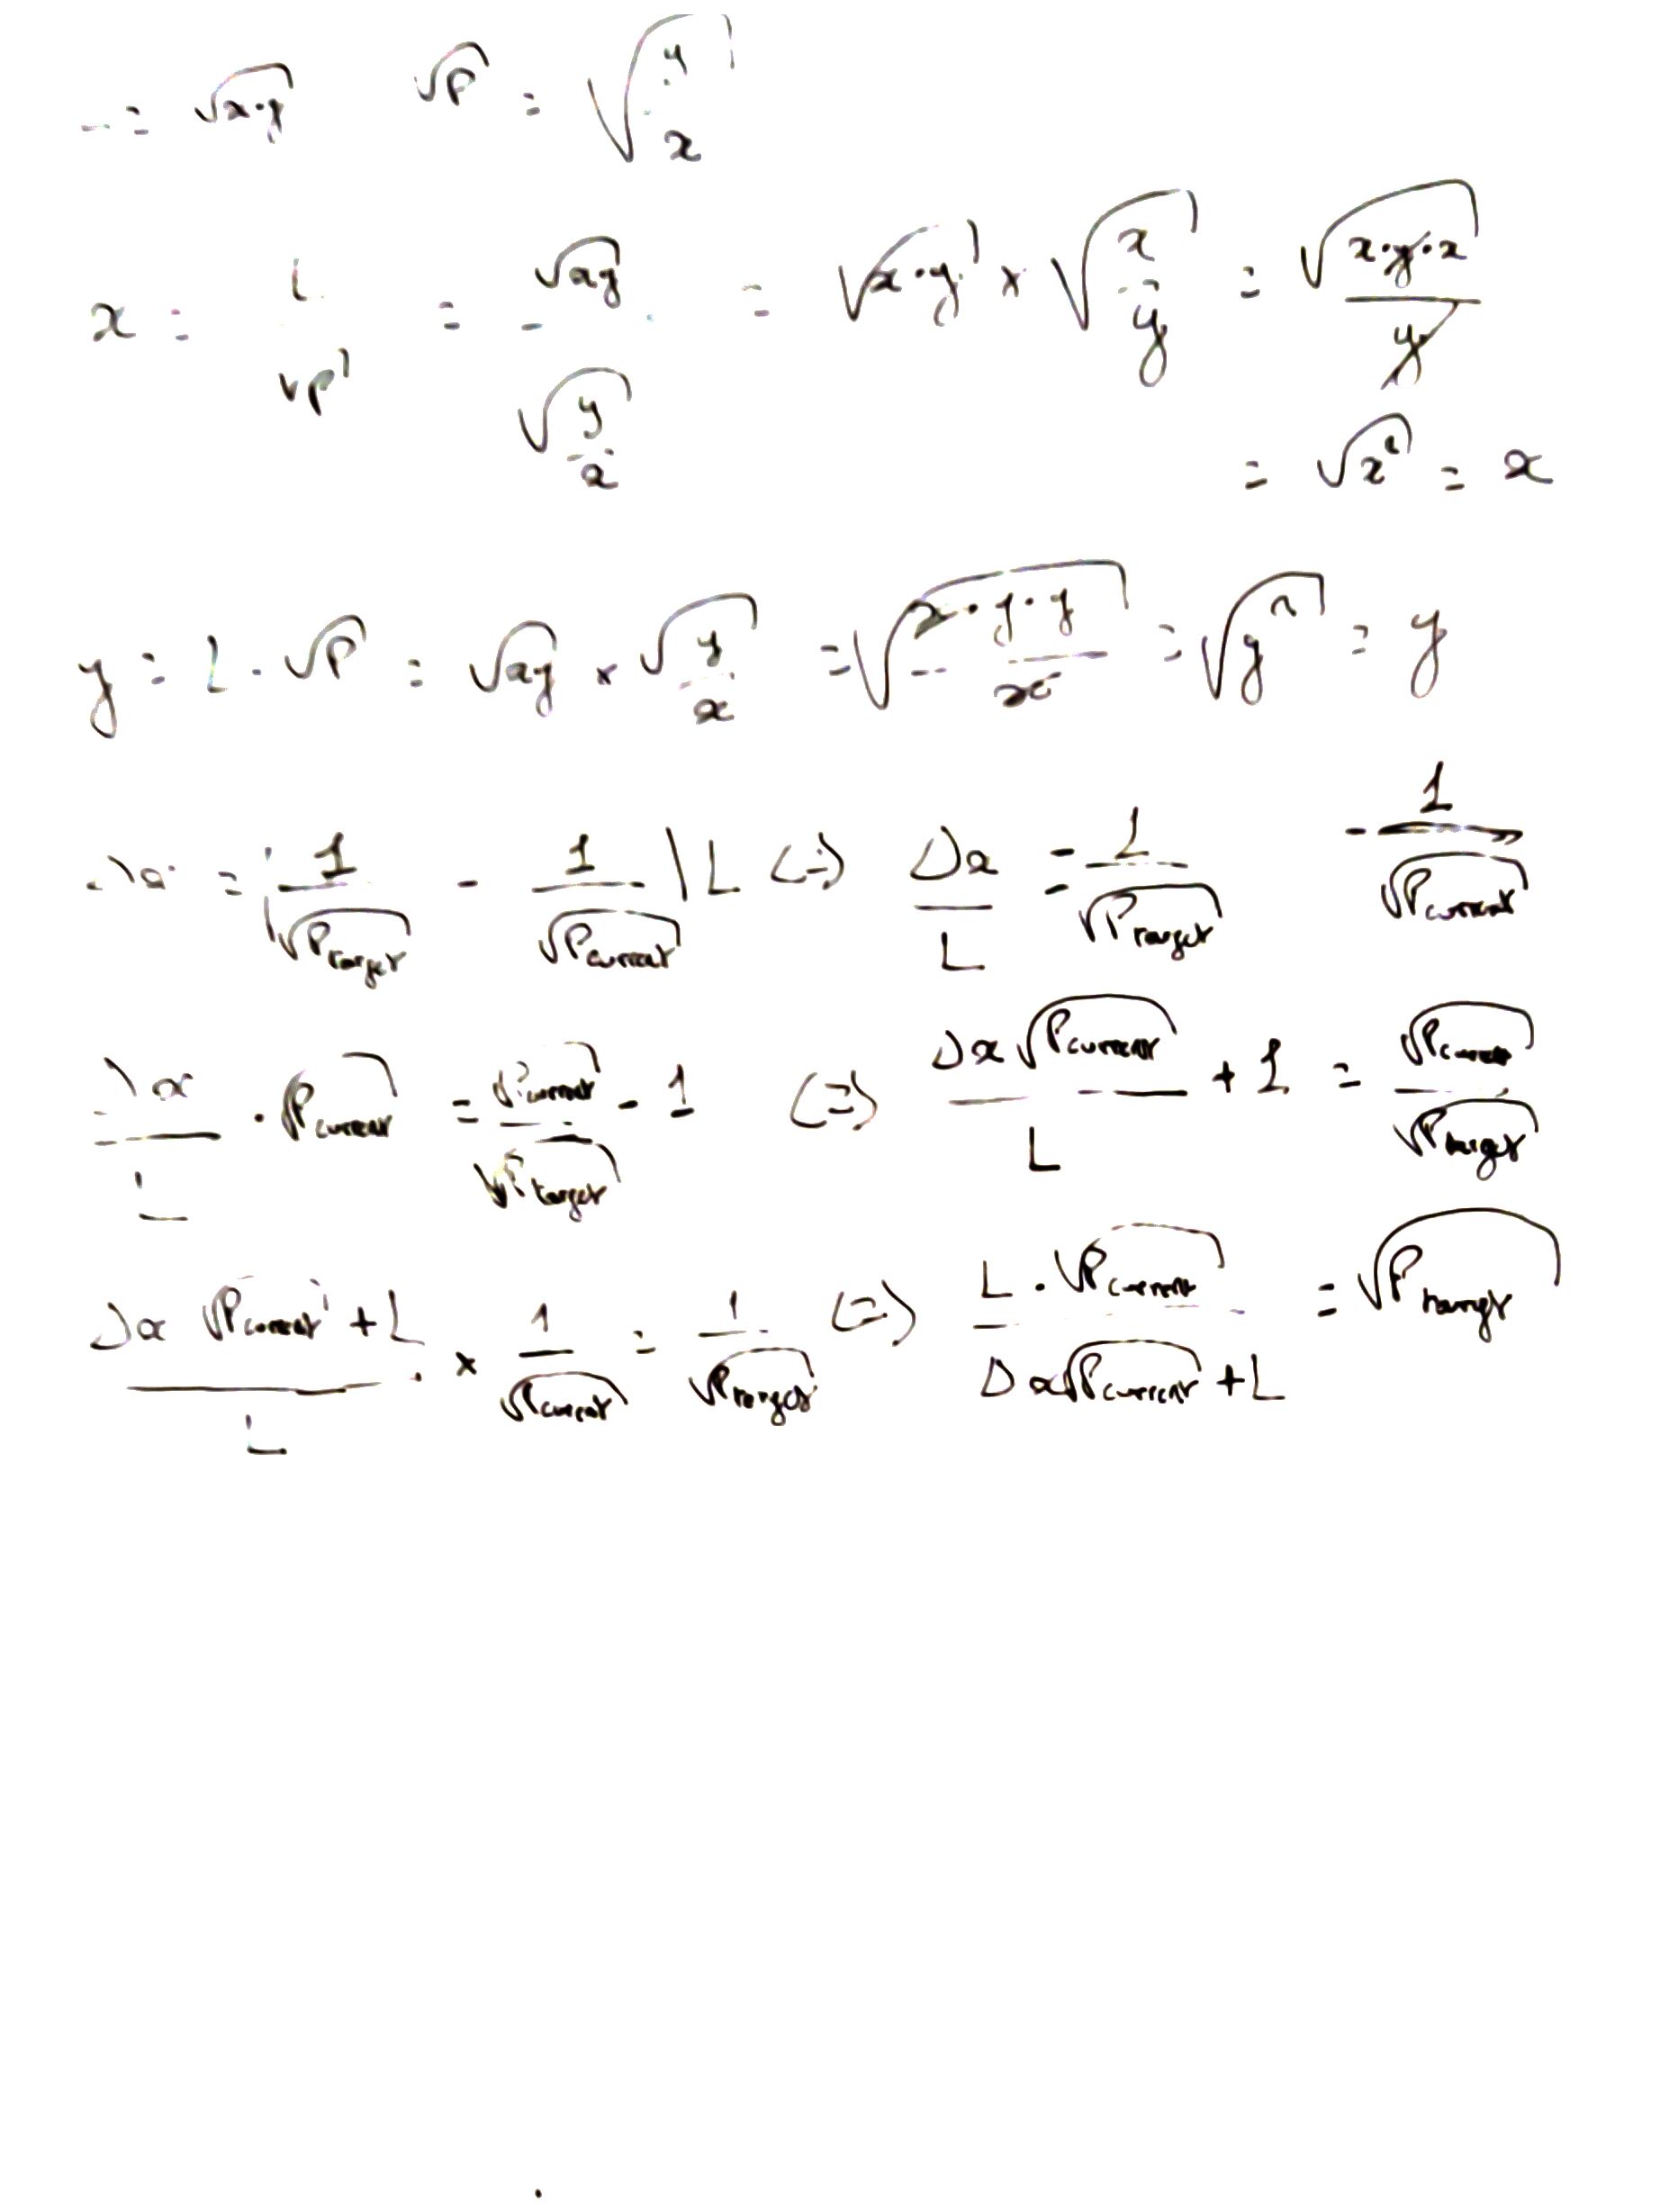 = √(x·y)    √P = √(y/x)
x = L/√P = √(xy)/√(y/x) = √(x·y) × √(x/y) = √((x·y·x)/y)
= √(x²) = x
y = L·√P = √(xy) × √(y/x) = √((x·y·y)/x) = √(y²) = y
Δx = (1/√P_target - 1/√P_current) L (=) Δx/L = 1/√P_target - 1/√P_current
Δx/L · √P_current = √P_current/√P_target - 1 (=) Δx√P_current/L + 1 = √P_current/√P_target
(Δx √P_current + L)/L × 1/√P_current = 1/√P_target (=) (L·√P_current)/(Δx√P_current + L) = √P_target